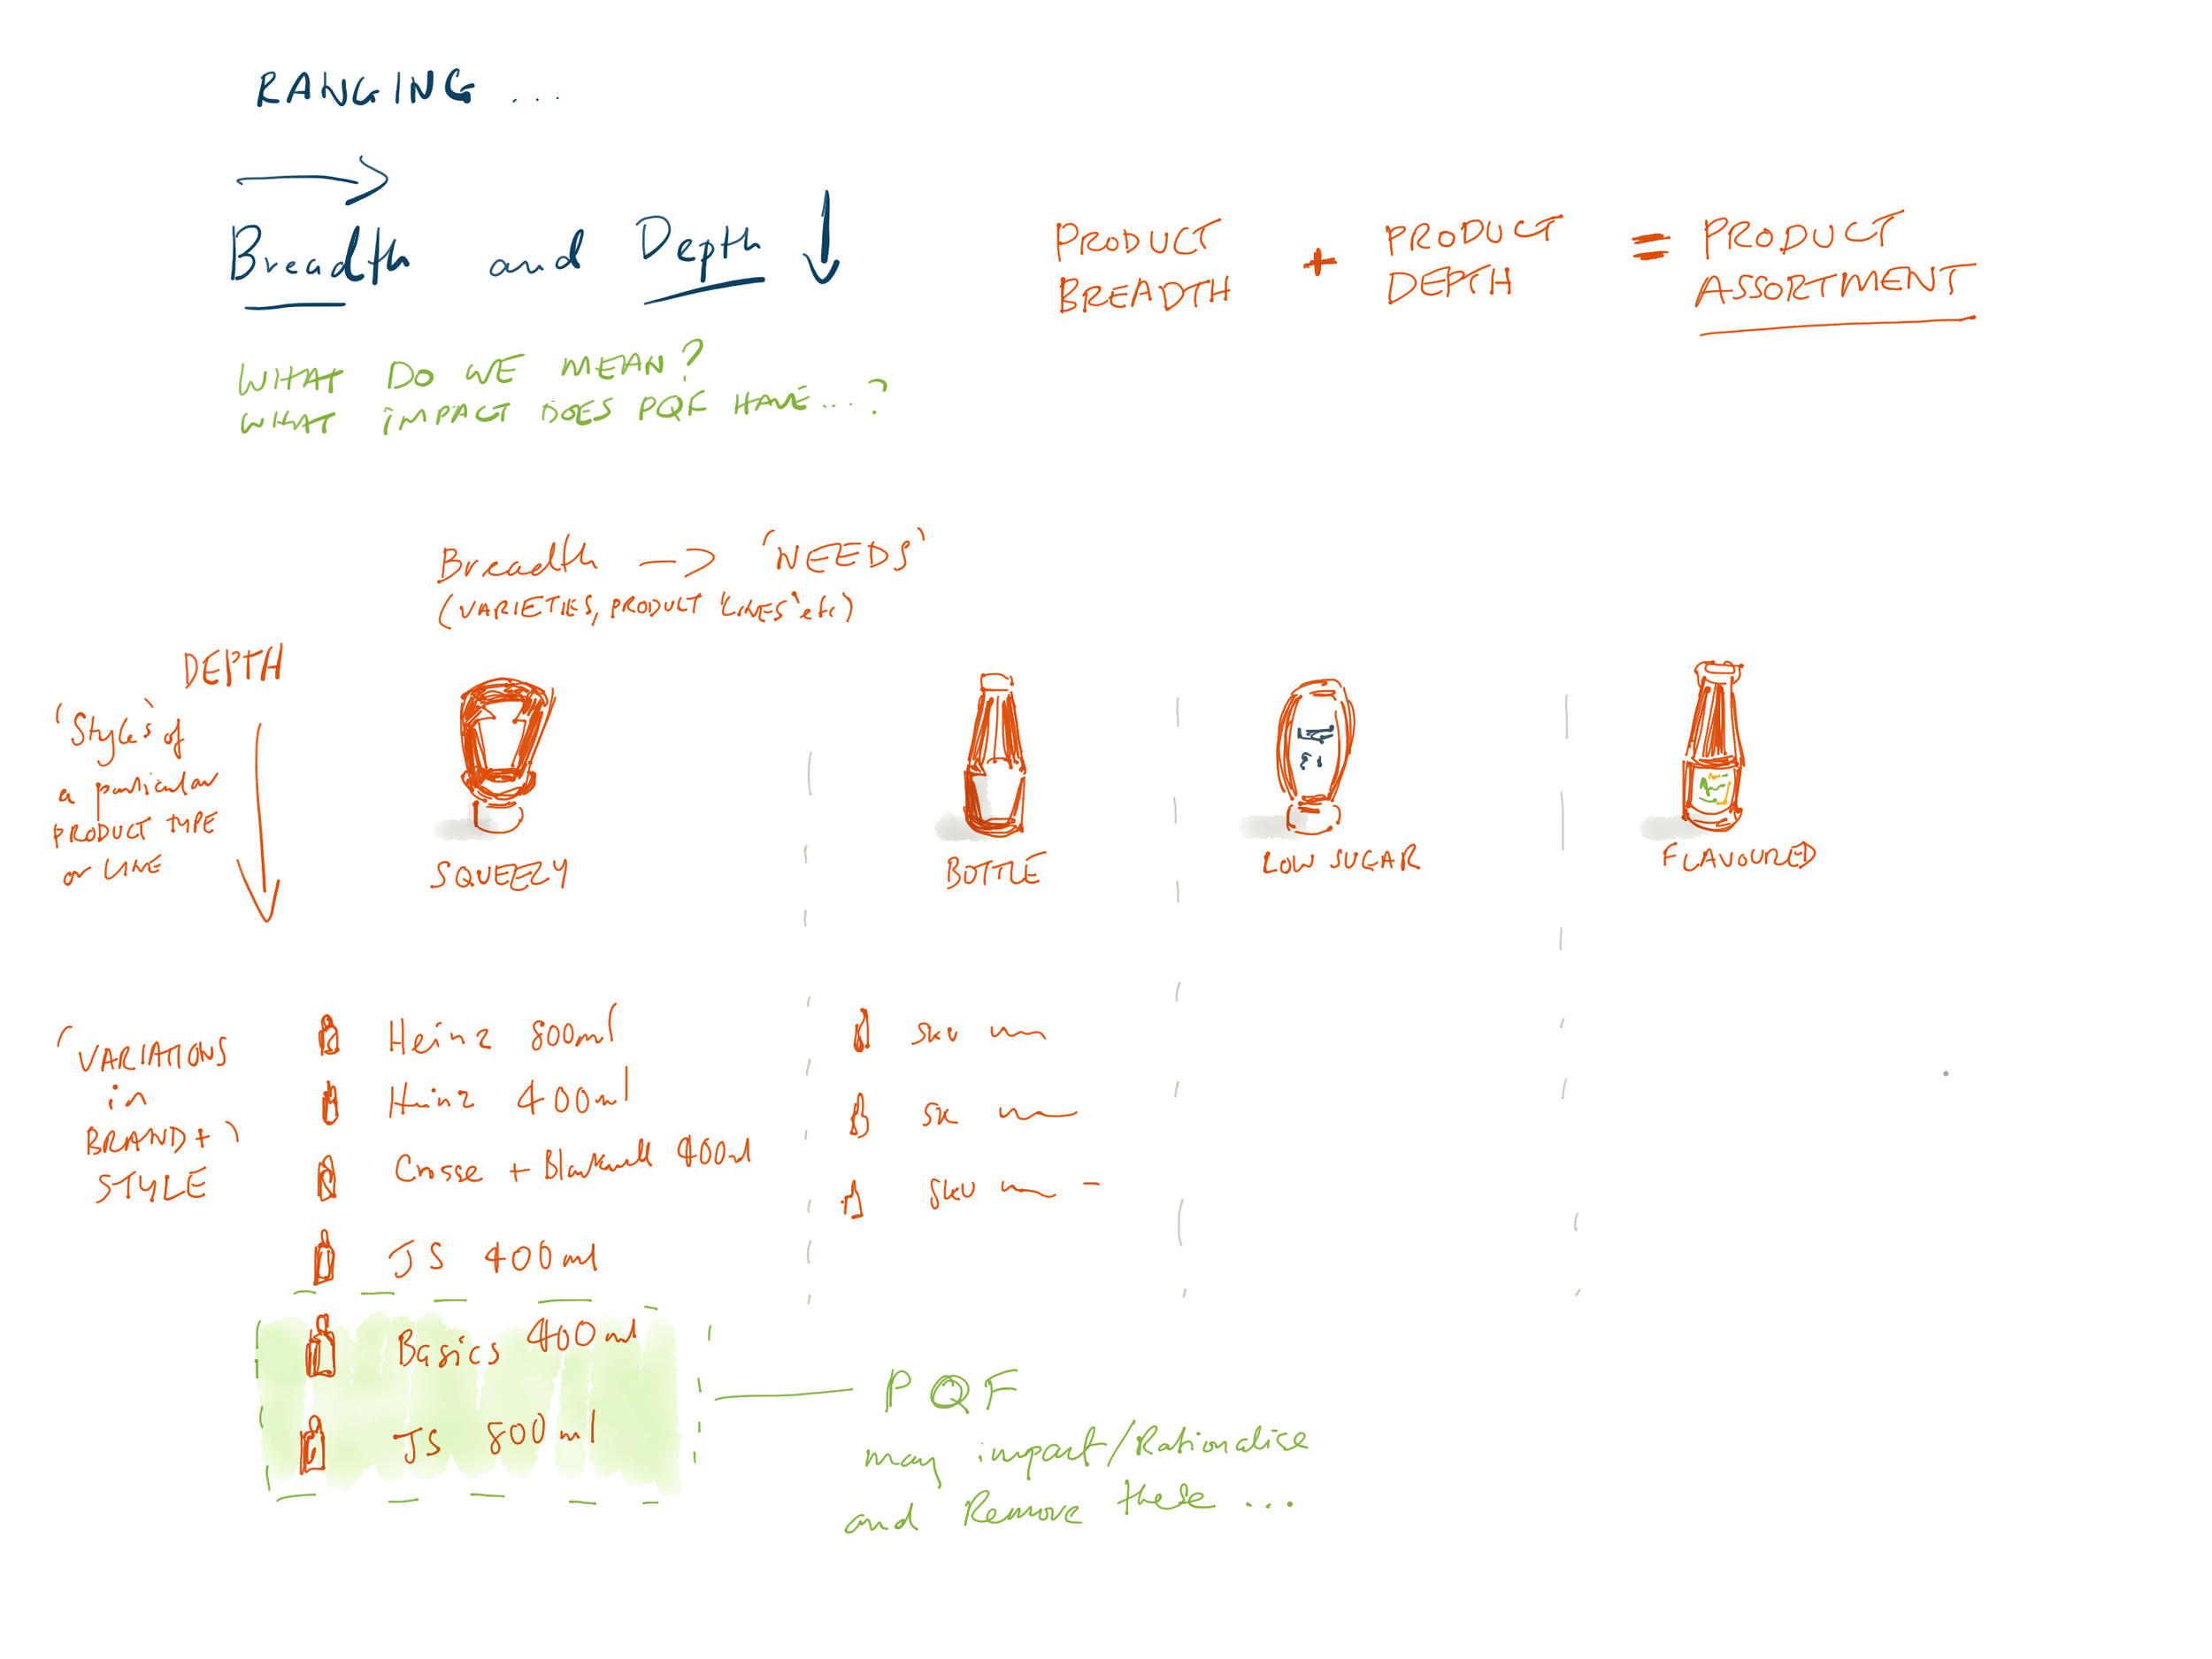 RANGING ...
Breadth and Depth
PRODUCT BREADTH + PRODUCT DEPTH = PRODUCT ASSORTMENT
WHAT DO WE MEAN?
WHAT IMPACT DOES PQF HAVE...?
Breadth -> 'NEEDS'
(VARIETIES, PRODUCT 'LINES' etc)
DEPTH
'Styles' of
a particular
PRODUCT TYPE
or LINE
SQUEEZY
BOTTLE
LOW SUGAR
FLAVOURED
'VARIATIONS
in
BRAND +'
STYLE
Heinz 800ml
Heinz 400ml
Crosse + Blackwell 400ml
JS 400ml
Basics 400ml
JS 800ml
SKU
SK
SKU
PQF
may impact/Rationalise
and Remove these ...